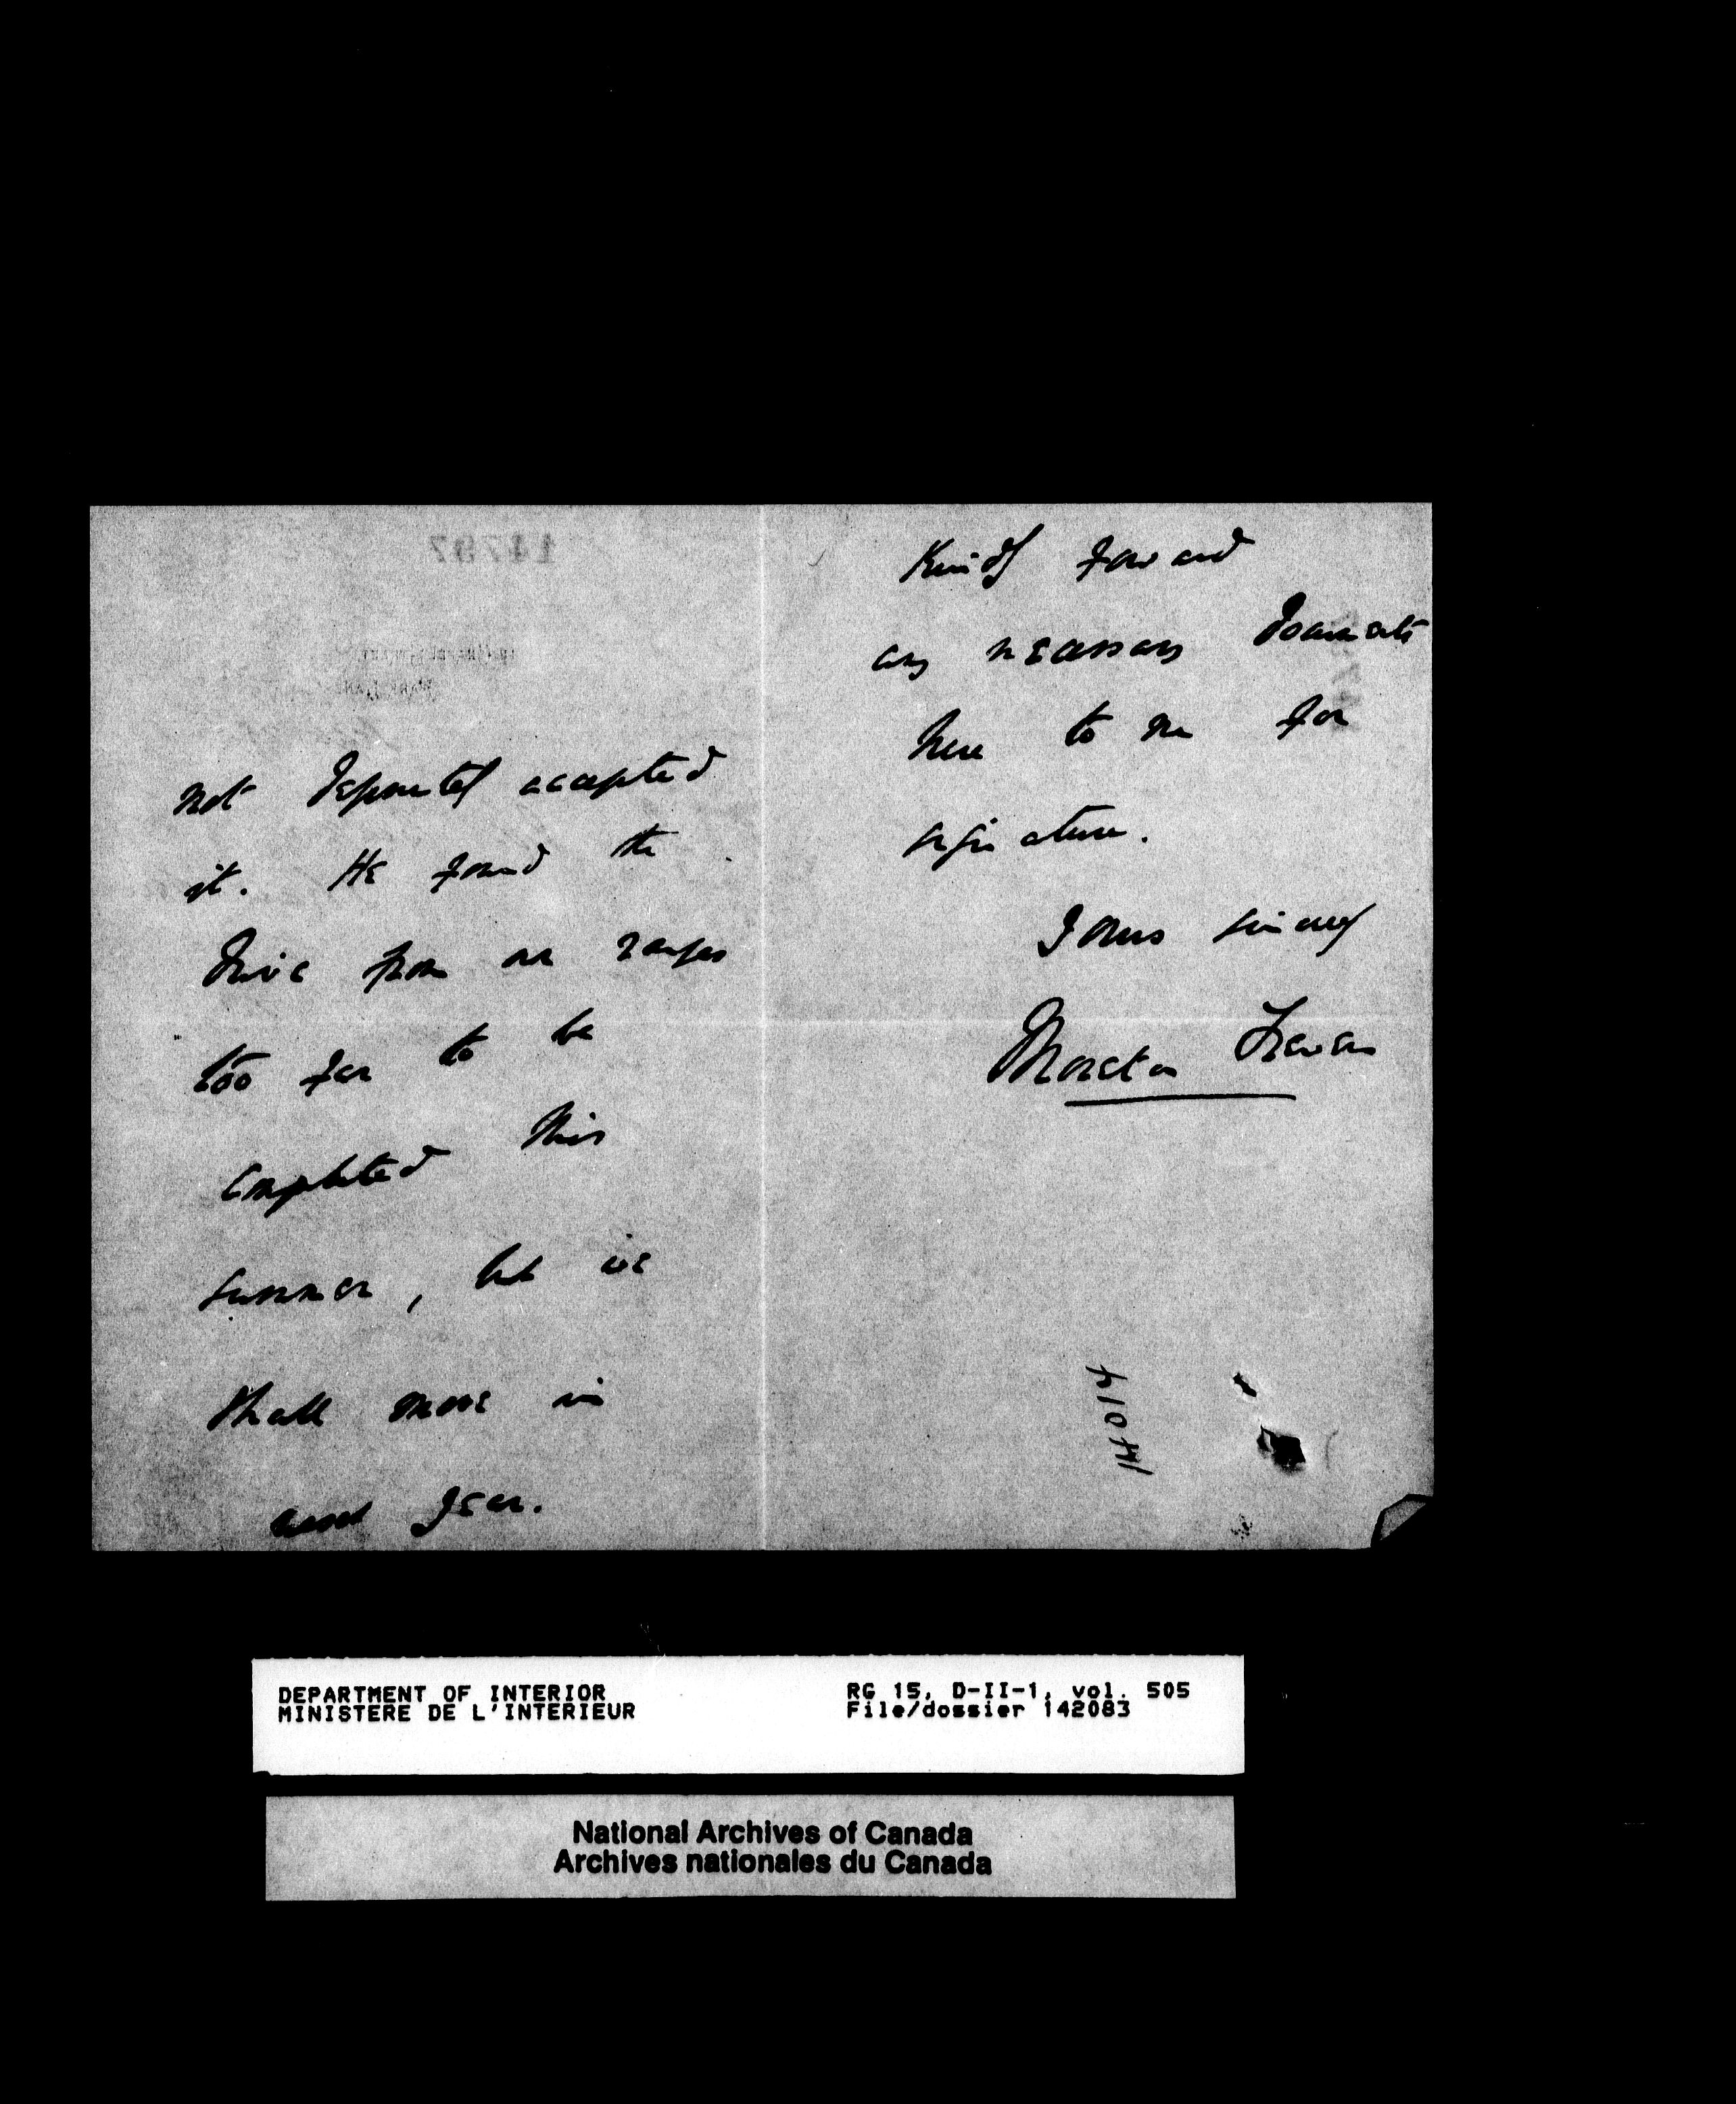 not definitely accepted
it. He found the
drive from our ranges
too far to be
completed this
summer, but we
shall move in
next year.
Kindly forward
any necessary documents
here to me for
signature.
Yours sincerely
Moreton Frewen
14014
14797
DEPARTMENT OF INTERIOR
MINISTERE DE L'INTERIEUR
RG 15, D-II-1, vol. 505
File/dossier 142083
National Archives of Canada
Archives nationales du Canada